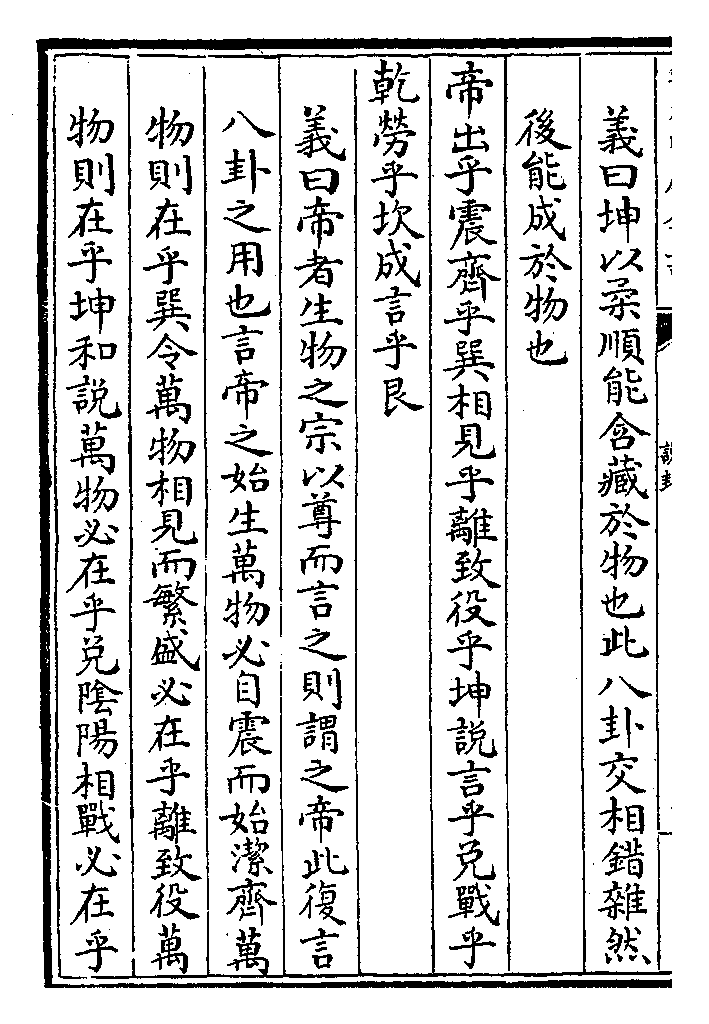 說卦
義曰坤以柔順能含藏於物也此八卦交相錯雜然
後能成於物也
帝出乎震齊乎巽相見乎離致役乎坤説言乎兑戰乎
乾勞乎坎成言乎艮
義曰帝者生物之宗以尊而言之則謂之帝此復言
八卦之用也言帝之始生萬物必自震而始潔齊萬
物則在乎巽令萬物相見而繁盛必在乎離致役萬
物則在乎坤和説萬物必在乎兑隂陽相戰必在乎